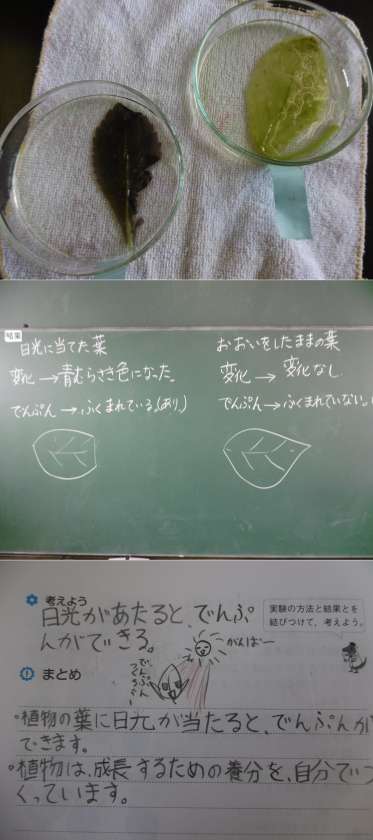 結果
日光に当てた葉
変化→青むらさき色になった。
でんぷん→ふくまれている。(あり。)
おおいをしたままの葉
変化→変化なし
でんぷん→ふくまれていない。
考えよう
日光があたると、でんぷ
んができる。
実験の方法と結果とを
結びつけて、考えよう。
がんばー
でんぷん
つくるぞー
まとめ
・植物の葉に日光が当たると、でんぷんが
できます。
・植物は、成長するための養分を、自分でつ
くっています。